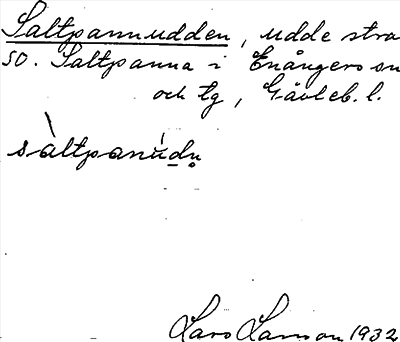 Saltpannudden, udde stra
so. Saltpanna i Enångers sn
och tg, Gävleb. l.
sàltpanúdn̥
Lars Larsson 1932